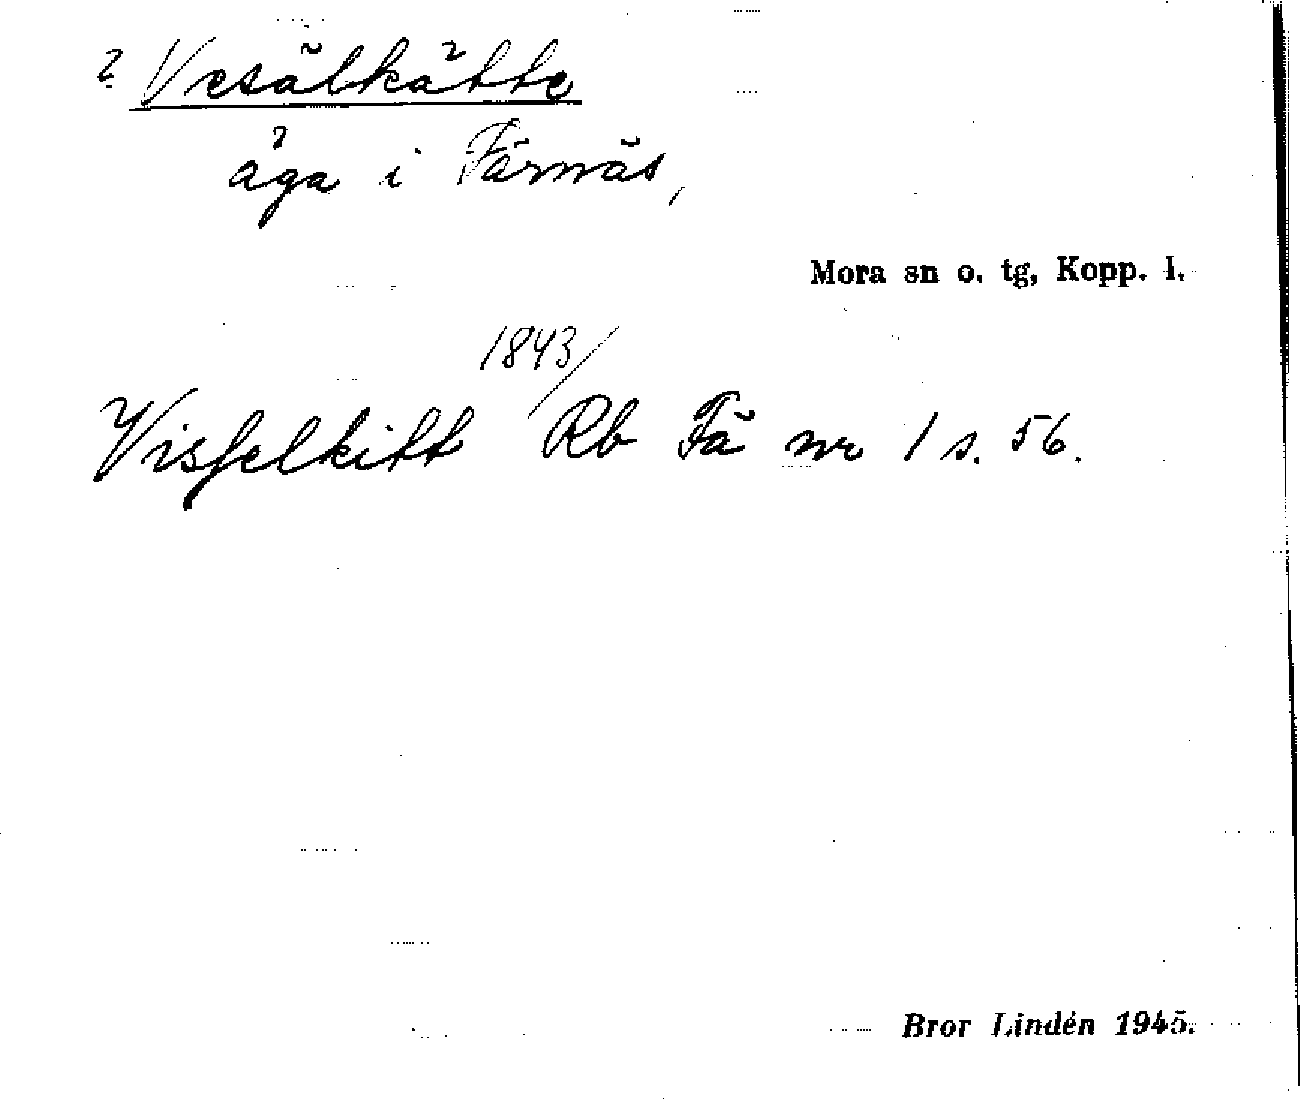 ? Vesälkåtte
åga i Färnäs,
Mora sn o. tg, Kopp. l.
1843/
Visselkitt Rb Fä nr 1 s. 56.
Bror Lindén 1945.